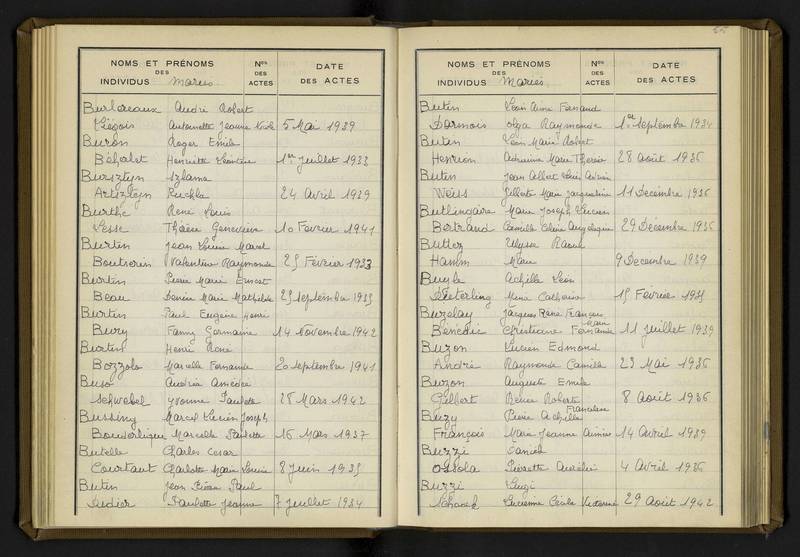 NOMS ET PRÉNOMS Nos DATE
DES DES
INDIVIDUS Mariés ACTES DES ACTES
Burlereaux André Robert
Liégois Antoinette Jeanne 5 Mai 1939
Buron Roger Emile
Henriette 1er Juillet 1933
Bursztyn Szlama
Artsztejn Ruchla 24 Avril 1939
Burthe René Louis
Lesse Geneviève 10 Fevrier 1941
Burtin Jean Louis Marcel
Boutrerin Valentine Raymonde 25 Février 1933
Burtin Pierre Marie Ernest
Beau Denise Marie Mathilde 25 Septembre 1935
Burtin Paul Eugène Henri
Bury Fanny Germaine 14 Novembre 1942
Burtin Henri René
Bozzolo Marcelle Fernande 20 Septembre 1941
Buso Amédée
Schwebel Yvonne Paulette 28 Mars 1942
Bussing Marcel Lucien Joseph
Marcelle Paulette 16 Mars 1937
Butelle Charles Cesar
Courtaut Charlotte Marie Louise 8 Juin 1935
Butin Jean Paul
Didier Paulette Jeanne 7 Juillet 1934
65
NOMS ET PRÉNOMS Nos DATE
DES DES
INDIVIDUS Mariés ACTES DES ACTES
Butin Léon Fernand
Darmois Olga Raymonde 1er Septembre 1934
Butin Léon Marie Robert
Henrion Marie Thérèse 28 Août 1936
Butin Jean Albert Louis
Weiss Gilberte Marie Jacqueline 11 Decembre 1936
Butlingaire Marie Joseph Lucien
Bertrand Camille Angelique 29 Décembre 1936
Butler Ulysse Raoul
Hamm Marie 9 Decembre 1939
Buyle Achille Léon
Dieterling Mina Catherine 15 Février 1935
Buzelay Jacques René François
Marie
Benedic Christiane Fernande 11 Juillet 1939
Buzon Lucien Edmond
André Raymonde Camille 23 Mai 1936
Buzon Auguste Emile
Gilbert Renée Roberte 8 Août 1936
Buzy Pierre Achille
François Marie Jeanne Aimée 14 Avril 1939
Buzzi
Ossola Pierrette 4 Avril 1936
Buzzi Luigi
Lucienne Cécile Victorine 29 Août 1942